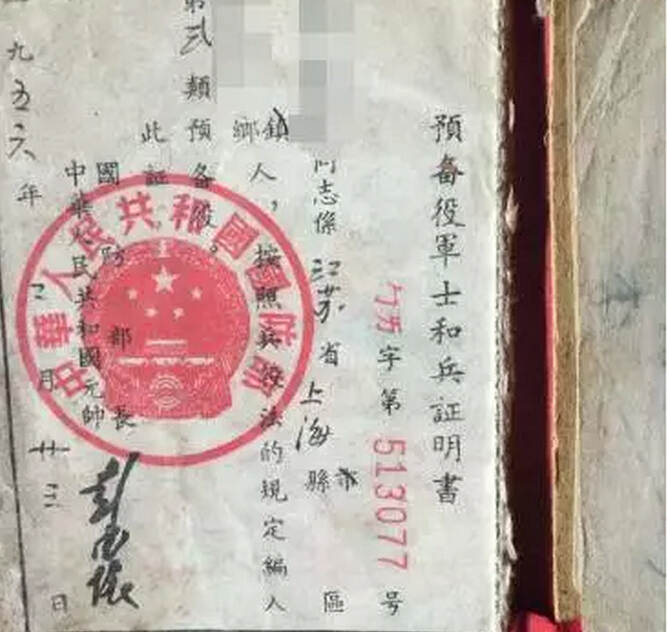 預备役軍士和兵証明書
字第513077号
同志係江苏省上海縣市區
鄉鎮人，按照兵役法的規定編入
第弍類預备役。
此証
國防部長
中華人民共和國元帥
彭德怀
九五六年二月廿三日
中華人民共和國國防部